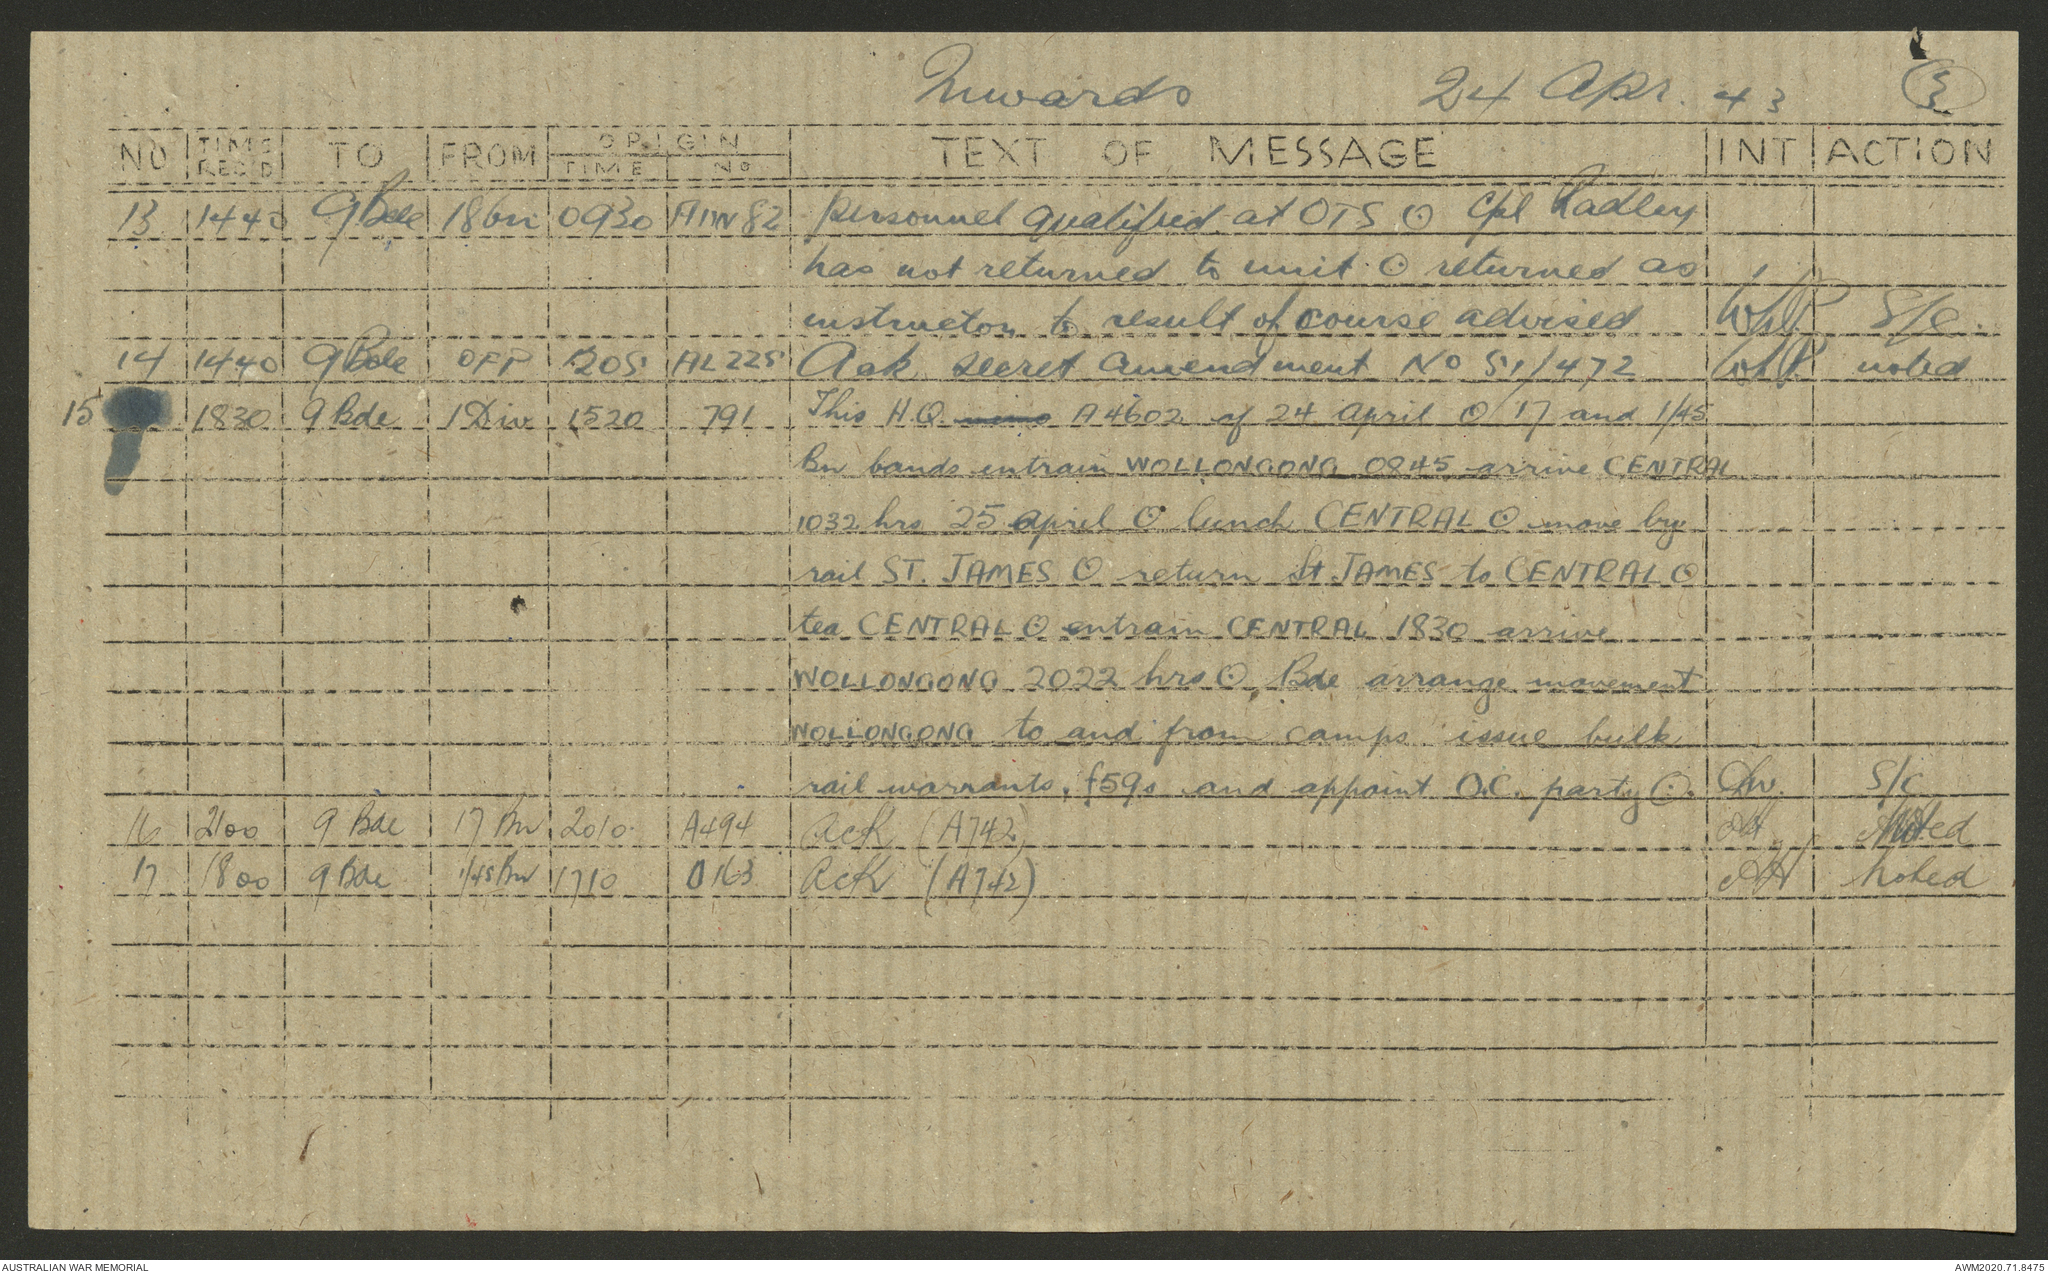 Inwards 24 Apr. 43 3
NO TIME REC'D TO FROM ORIGIN TIME NO TEXT OF MESSAGE INT ACTION
13 1440 9 Bde 18 Bn 0930 AIW82 Personnel qualified at OTS ⊙ Cpl Radley
has not returned to unit ⊙ returned as
instructor to result of course advised S/C.
14 1440 9 Bde OFP 1205 AL225 Ack secret amendment No 51/472 noted
15 1830 9 Bde 1 Div 1520 791 This H.Q. memo A4602 of 24 April ⊙ 17 and 1/45
Bn bands entrain WOLLONGONG 0845 arrive CENTRAL
1032 hrs 25 April ⊙ lunch CENTRAL ⊙ move by
rail ST. JAMES ⊙ return St JAMES to CENTRAL ⊙
tea CENTRAL ⊙ entrain CENTRAL 1830 arrive
WOLLONGONG 2022 hrs ⊙ Bde arrange movement
WOLLONGONG to and from camps issue bulk
rail warrants, f59s and appoint O.C. party ⊙. S/C
16 2100 9 Bde 17 Bn 2010 A494 Ack (A742) Noted
17 1800 9 Bde 1/45 Bn 1710 O163 Ack (A742) Noted
AUSTRALIAN WAR MEMORIAL AWM2020.71.8475